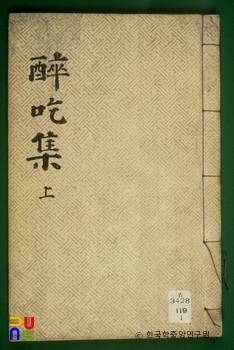 醉吃集
上
古
3428
119
1
ⓒ한국학중앙연구원